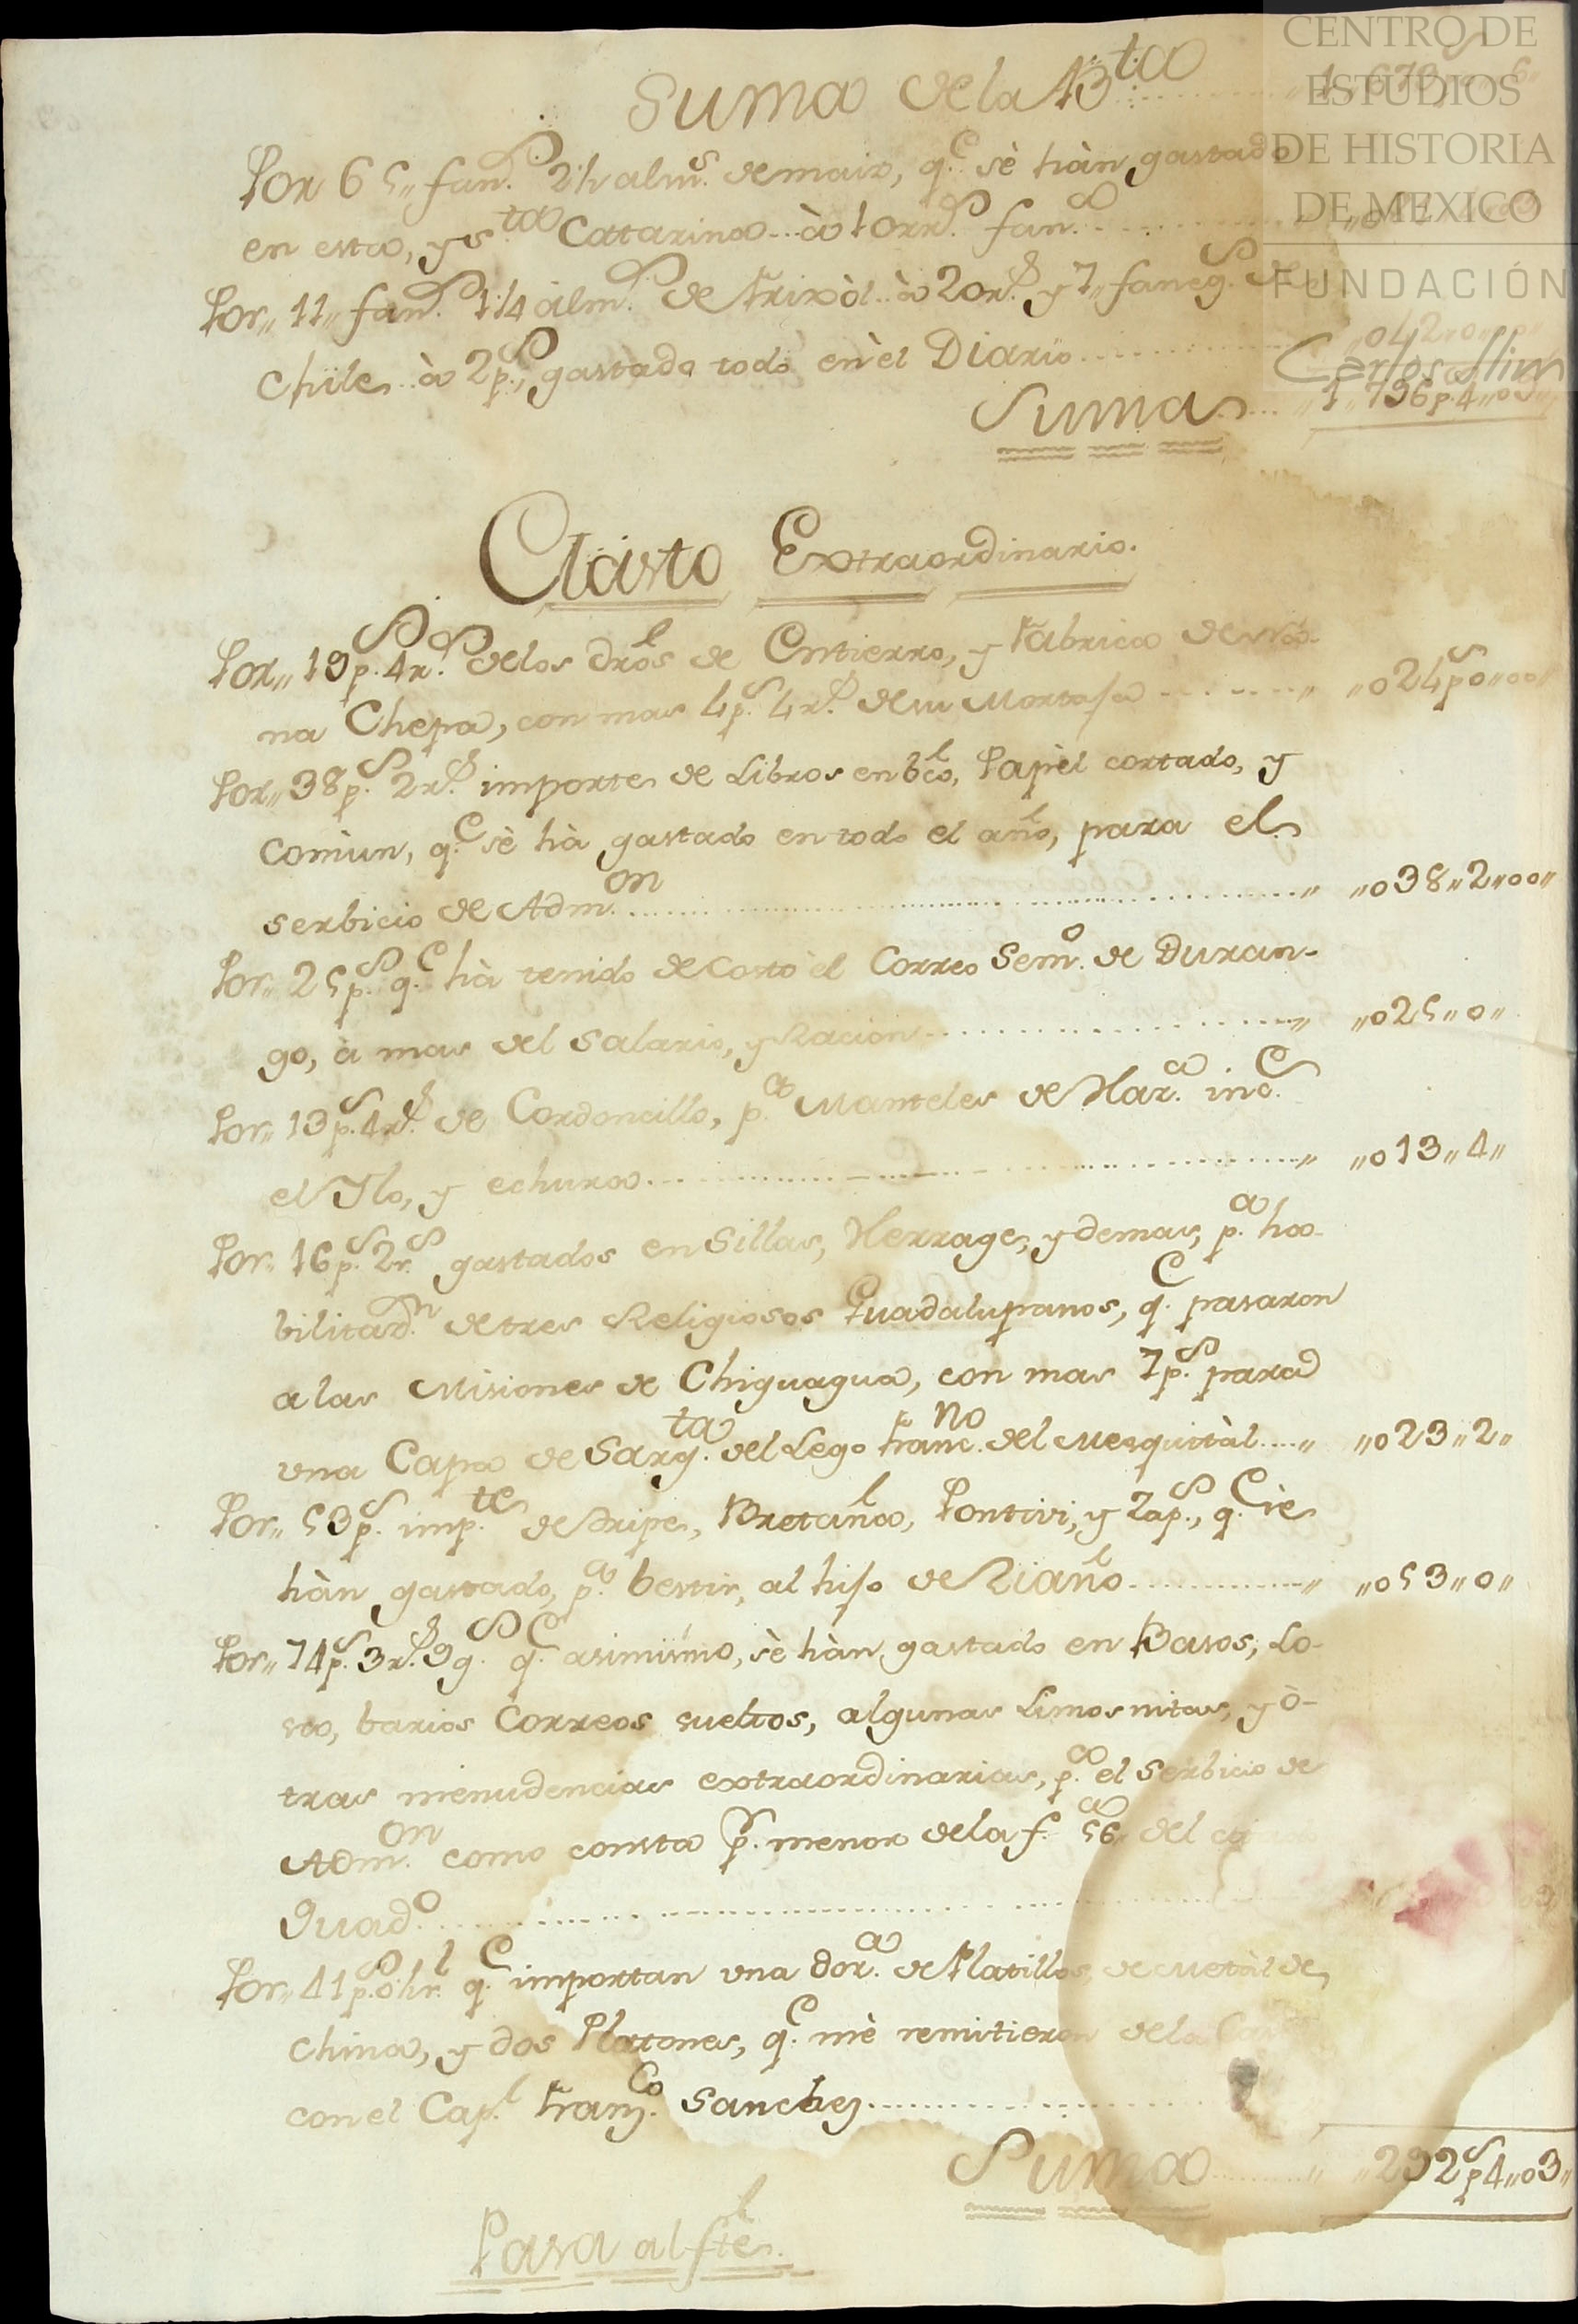 CENTRO DE
ESTUDIOS
DE HISTORIA
DE MEXICO
FUNDACIÓN
Carlos Slim
Suma de la 13.ta
Por 65,, fan.s 2½ alm.s de maix, q.e sè hàn gastado
en esta, y S.ta Catarina à 10 rr.s fan.a
Por,, 11,, fan.s 1¼ alm.s de Frixòl à 20 r.s y 7,, faneg.s de
Chile à 2 p.s, gastado todo en èl Diario ,,042,,0,,
Suma ,,1,,796 p.4,,03,,
Gasto Extraordinario.
Por,, 19 p.s 4 r.s de los dros de Entierro, y Fabrica de
na Chepa, con mas 4 p.s 4 r.s de su Mortaja ,,024 p.s 0,,00,,
Por,, 38 p.s 2 r.s importe de Libros en blco, Papèl cortado, y
comùn, q.e sè hà gastado en todo el año, para el
serbicio de Adm.on ,,038,,2,,00,,
Por,, 25 p.s q.e hà tenido de costo el Correo Sem.o de Duran-
go, à mas del Salario, y Racion ,,025,,0,,
Por,, 13 p.s 4 r.s de Cordoncillo, p.a Manteles de Har.a inc.e
el Ylo, y echura ,,013,,4,,
Por,, 16 p.s 2 r.s gastados en Sillas, Herrage, y demas, p.a ha-
bilitad.n de tres Religiosos Guadalupanos, q.e pasaron
a las Misiones de Chiguagua, con mas 7 p.s para
una Capa de Sarg.ta del Lego Franc.no del Mesquitàl ,,023,,2,,
Por,, 53 p.s imp.te de Tripe, Bretaña, Pontivi, y Zap.s, q.e sè
hàn gastado, p.a bestir, al hijo de Riaño ,,053,,0,,
Por,, 74 p.s 3 r.s 9 g.s q.e asimismo, sè hàn gastado en Basos, Lo-
sa, barios Correos sueltos, algunas Limosnitas, y ò-
tras menudencias extraordinarias, p.a el Serbicio de
Adm.on como consta p.r menor de la f.a 56,, del
Quad.o
Por,, 41 p.s 0½ r.l q.e importan una dos.a de Platillos de Metàl de
China, y dos Platones, q.e mè remitieron de la
con el Cap.l Franz.co Sanchez
Suma ,,292 p.s 4,,03,,
Pasa al fte.